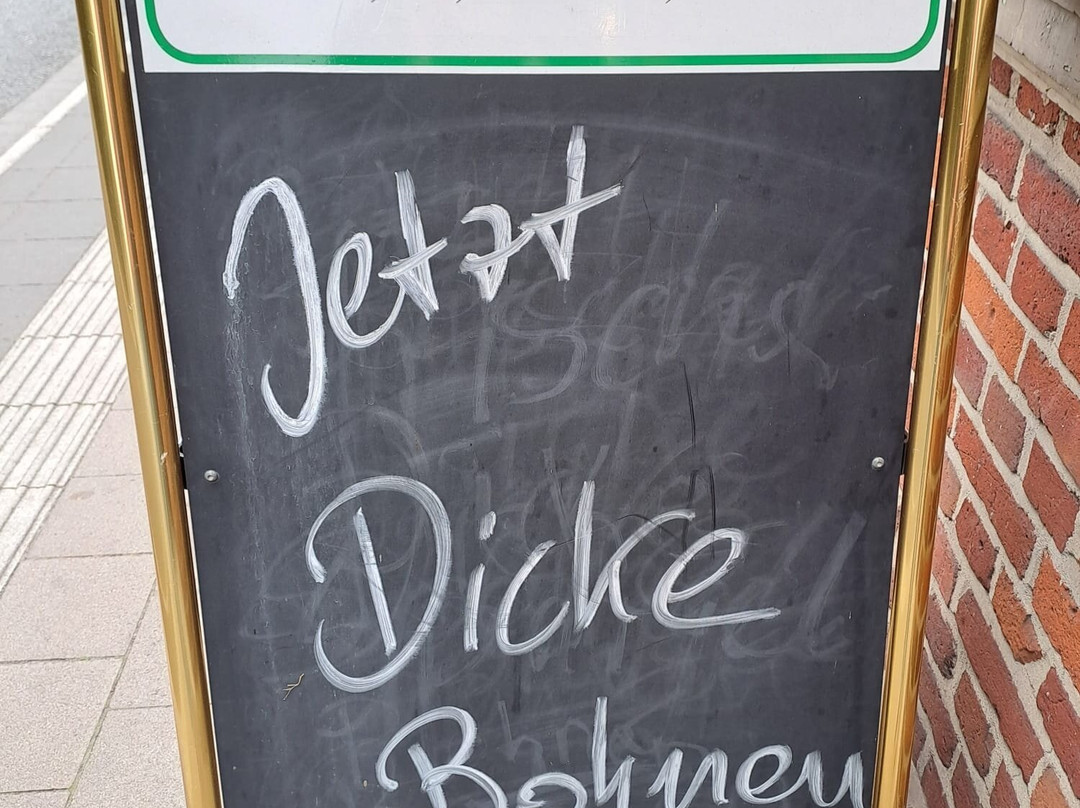 Jetzt
Dicke
Bohnen